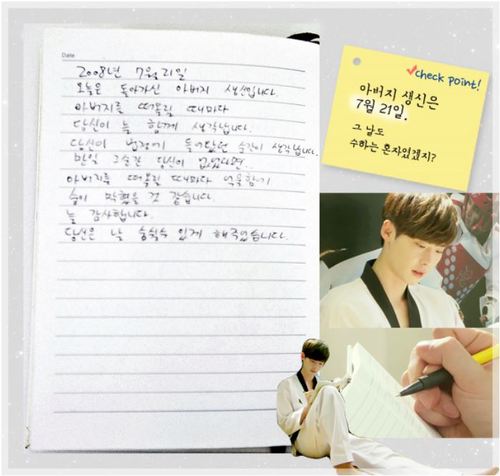 Date
2008년 7월 21일
오늘은 돌아가신 아버지 생신입니다.
아버지를 떠올릴 때마다
당신이 늘 함께 생각납니다.
당신이 법정에 들어왔던 순간이 생각납니다.
만일 그순간 당신이 없었다면
아버지를 떠올릴 때마다 억울함에
숨이 막혔을 것 같습니다.
늘 감사합니다.
당신은 날 숨쉴수 있게 해주었습니다.
✓check point!
아버지 생신은
7월 21일.
그 날도
수하는 혼자였겠지?